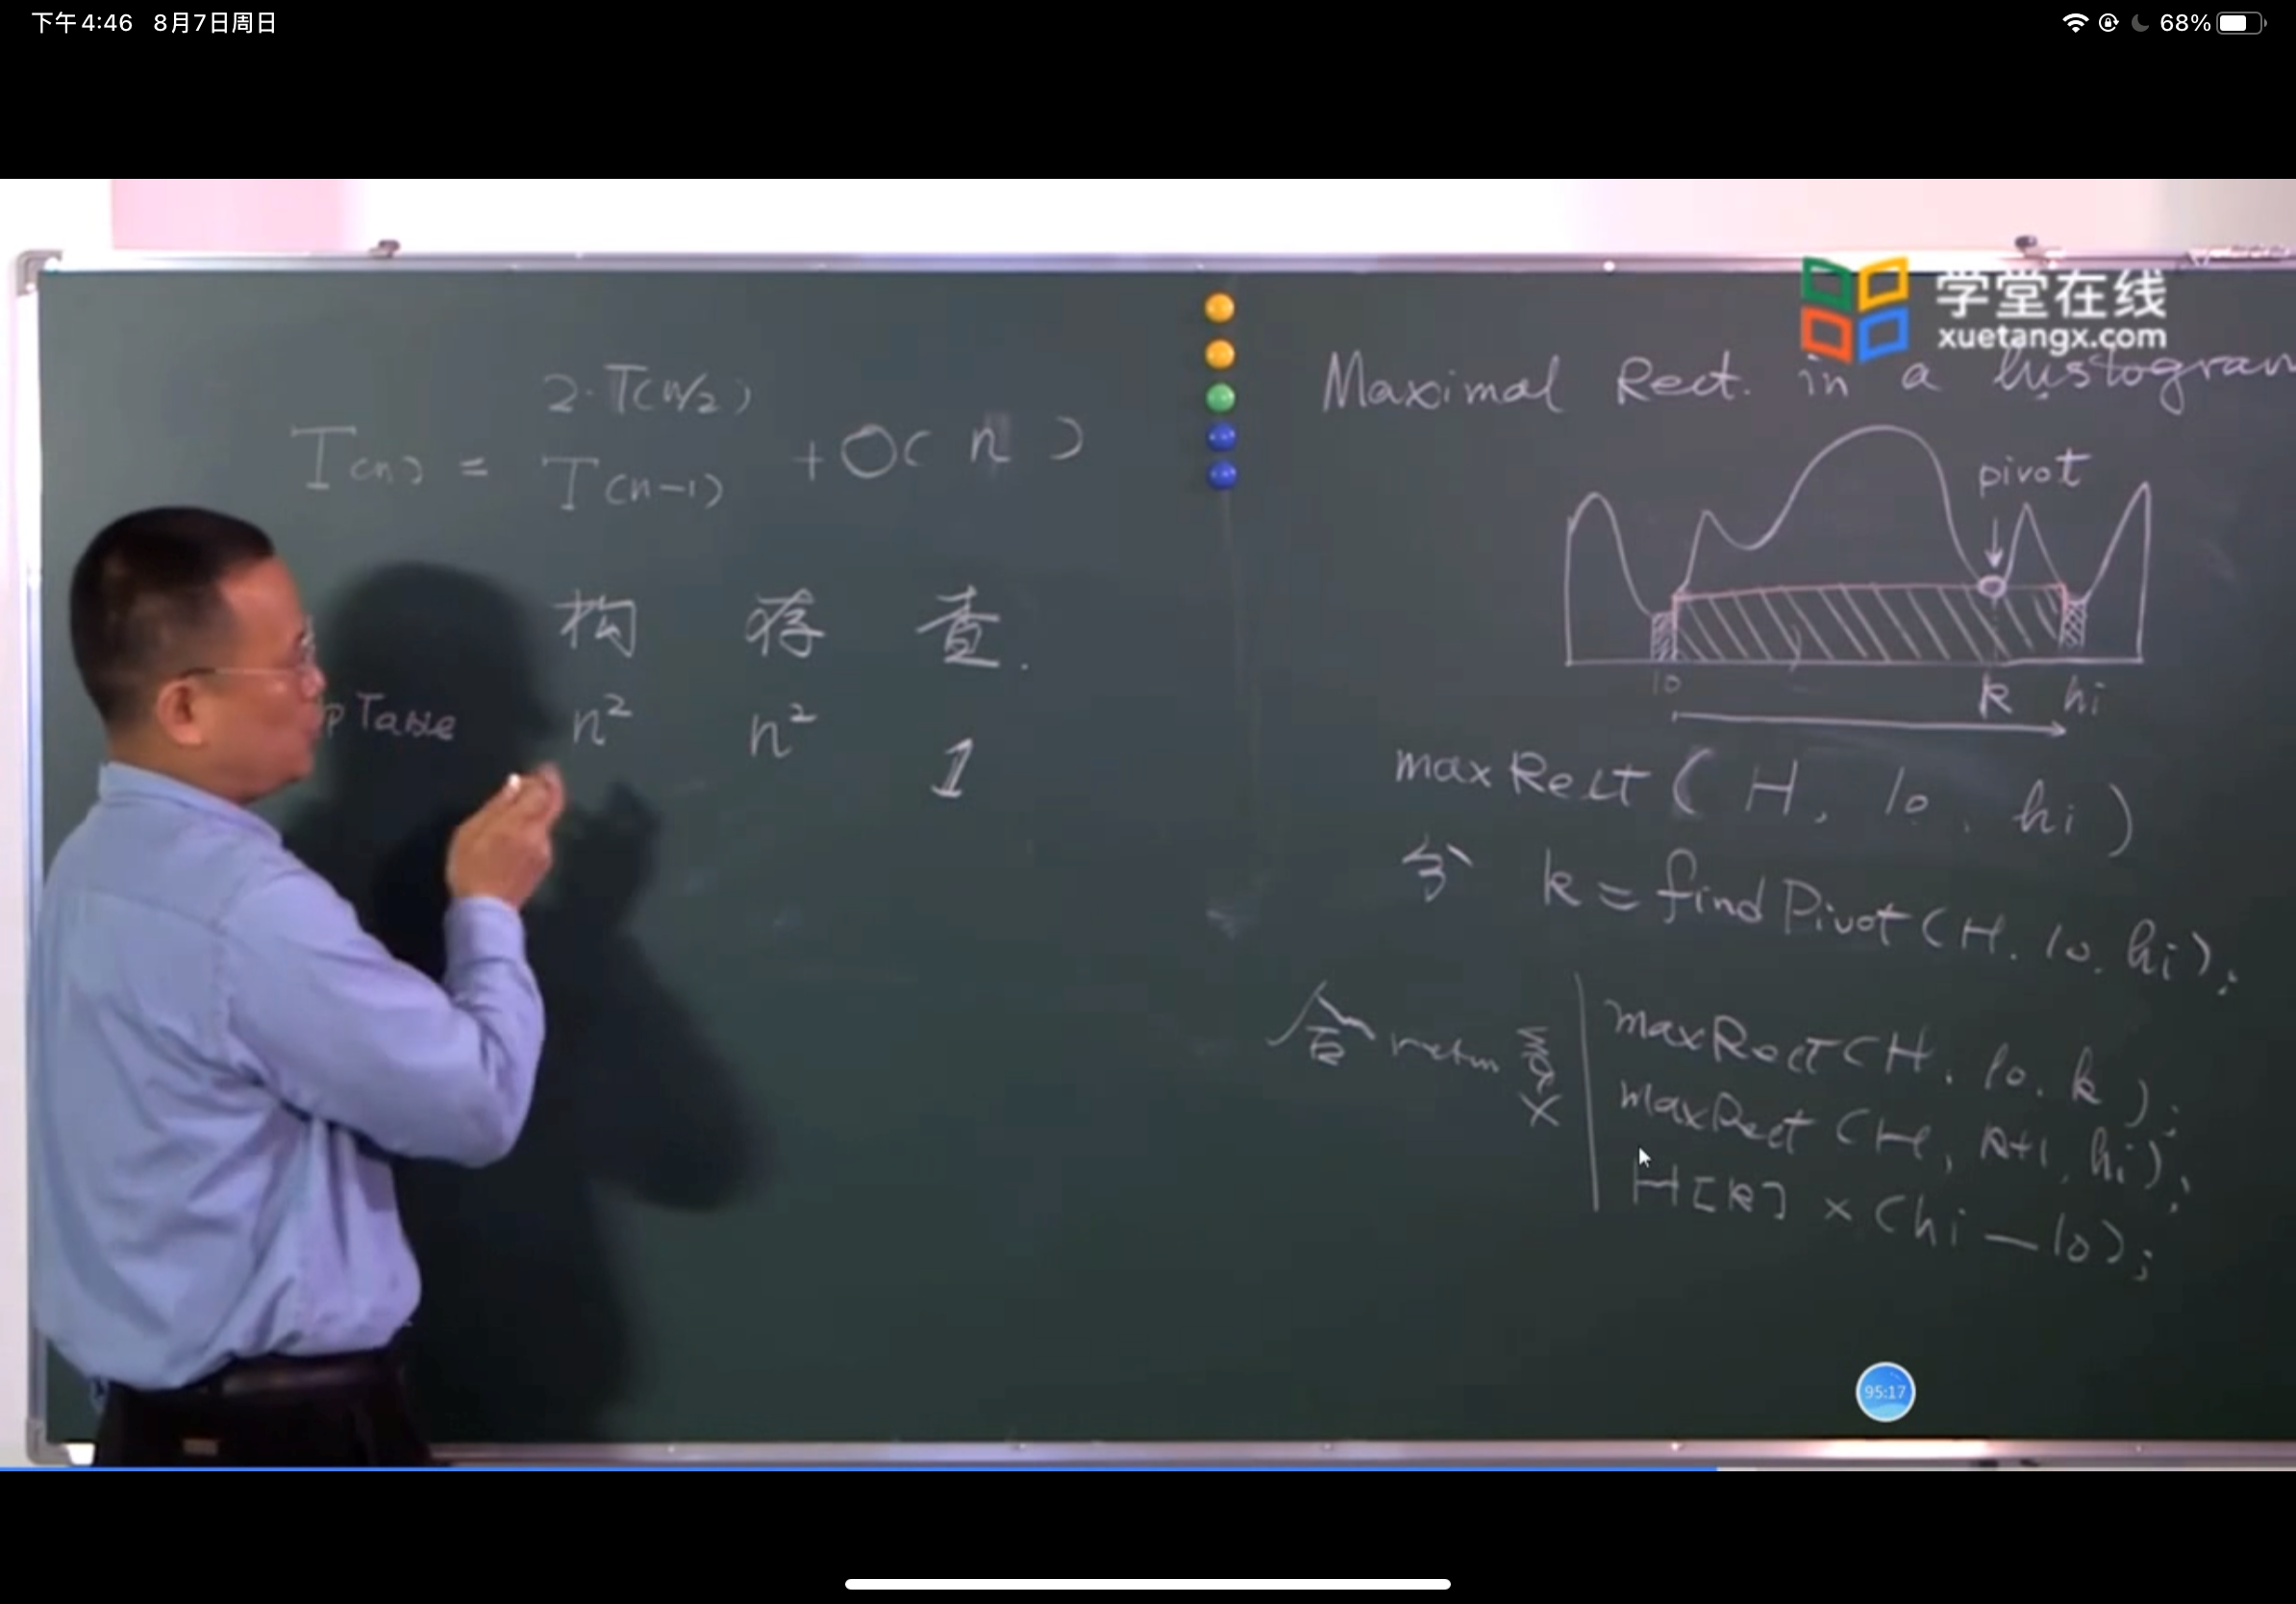 下午4:46 8月7日周日
68%
学堂在线
xuetangx.com
2·T(n/2)
T(n) = T(n-1) + O( n )
构 存 查.
pTable n² n² 1
Maximal Rect. in a histogram
pivot
lo k hi
maxRect ( H, lo, hi )
分 k = findPivot ( H, lo, hi );
合 return max
maxRect ( H, lo, k );
maxRect ( H, k+1, hi );
H[k] × ( hi - lo );
95:17